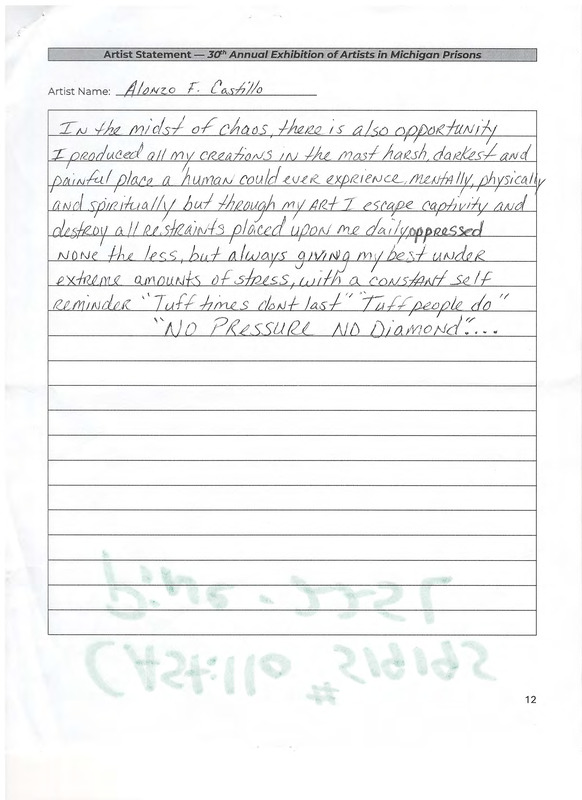 Artist Statement — 30th Annual Exhibition of Artists in Michigan Prisons
Artist Name: Alonzo F. Castillo
IN the midst of chaos, there is also opportunity
I produced all my creations in the most harsh, darkest and
painful place a human could ever exprience, mentally, physically
and spiritually but through my ART I escape captivity and
destroy all restraints placed upon me daily, oppressed
NONE the less, but always giving my best under
extreme amounts of stress, with a constant self
reminder "Tuff times dont last" "Tuff people do"
"NO PRESSURE NO DIAMOND"....
CAstillo #
12